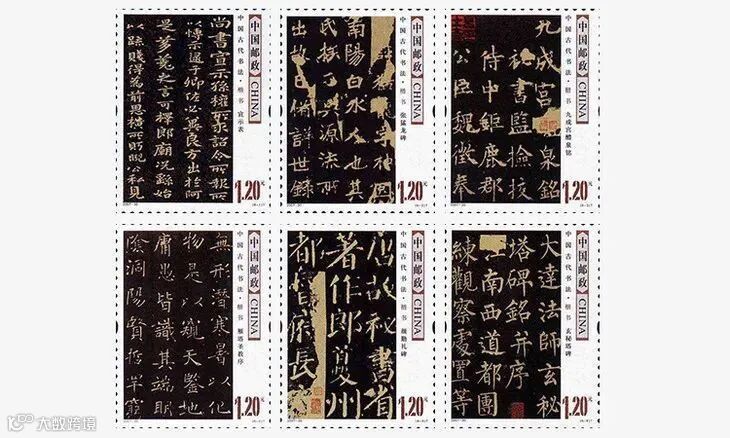 尚書宣示孫權所求詔令所報所
以博示逮于卿佐必冀良方出於阿
是芻蕘之言可擇郎廟況繇始
以疏賤得為前恩橫所盼睨公私見
中国邮政 CHINA
中国古代书法·楷书 宣示表
1.20元
龍字神冏
南陽白水人也其
民族分興源流所
出故已備詳世錄
中国邮政 CHINA
中国古代书法·楷书 张猛龙碑
1.20元
九成宮泉銘
祕書監檢校
侍中鉅鹿郡
公臣魏徵奉
中国邮政 CHINA
中国古代书法·楷书 九成宫醴泉铭
1.20元
無形潛寒暑以化
物是以窺天鑒地
庸愚皆識其端明
陰洞陽賢哲罕窮
中国邮政 CHINA
中国古代书法·楷书 雁塔圣教序
1.20元
唐故祕書省
著作郎夔州
都督府長
中国邮政 CHINA
中国古代书法·楷书 颜勤礼碑
1.20元
大達法師玄秘
塔碑銘并序
江南西道都團
練觀察處置等
中国邮政 CHINA
中国古代书法·楷书 玄秘塔碑
1.20元
大数跨境